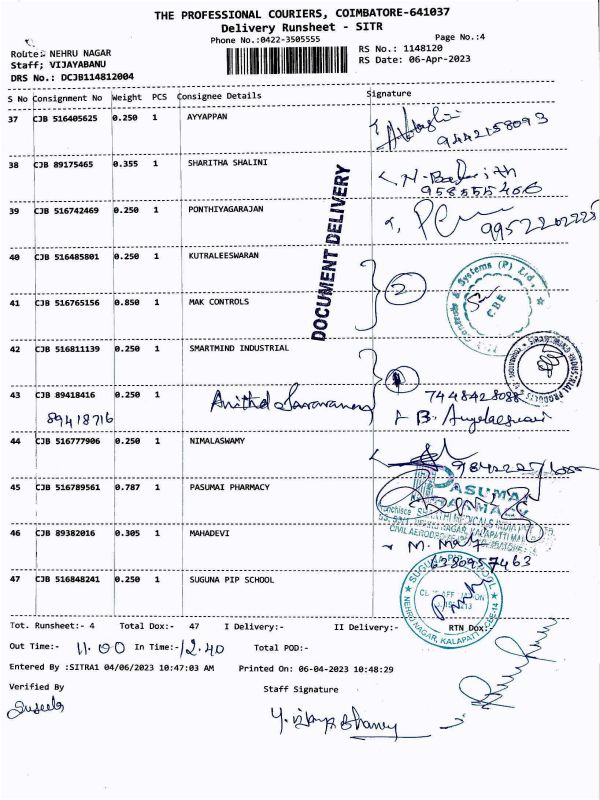 THE PROFESSIONAL COURIERS, COIMBATORE-641037
Delivery Runsheet - SITR
Phone No.:0422-3505555
Page No.:4
Route: NEHRU NAGAR
RS No.: 1148120
Staff; VIJAYABANU
RS Date: 06-Apr-2023
DRS No.: DCJB114812004
S No Consignment No Weight PCS Consignee Details Signature
37 CJB 516405625 0.250 1 AYYAPPAN
9442158093
38 CJB 89175465 0.355 1 SHARITHA SHALINI
39 CJB 516742469 0.250 1 PONTHIYAGARAJAN
40 CJB 516485801 0.250 1 KUTRALEESWARAN
2
41 CJB 516765156 0.850 1 MAK CONTROLS
DOCUMENT DELIVERY
42 CJB 516811139 0.250 1 SMARTMIND INDUSTRIAL
43 CJB 89418416 0.250 1
89418716
7448428088
44 CJB 516777906 0.250 1 NIMALASWAMY
45 CJB 516789561 0.787 1 PASUMAI PHARMACY
46 CJB 89382016 0.305 1 MAHADEVI
6380957463
47 CJB 516848241 0.250 1 SUGUNA PIP SCHOOL
NEHRU NAGAR, KALAPATTI
Tot. Runsheet:- 4 Total Dox:- 47 I Delivery:- II Delivery:- RTN Dox:
Out Time:- 11.00 In Time:- 12.40 Total POD:-
Entered By :SITRA1 04/06/2023 10:47:03 AM Printed On: 06-04-2023 10:48:29
Verified By
Staff Signature